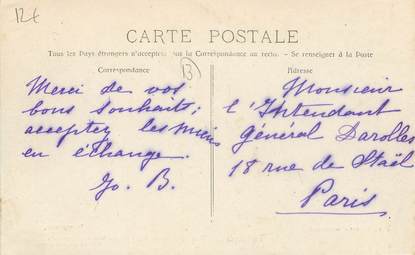 12€
CARTE POSTALE
Tous les Pays étrangers n'acceptent pas la Correspondance au recto. - Se renseigner à la Poste
Correspondance
Adresse
Merci de vos
bons souhaits;
acceptez les miens
en échange.
B.
Monsieur
l'Intendant
Général Darolles
18 rue de Staël
Paris